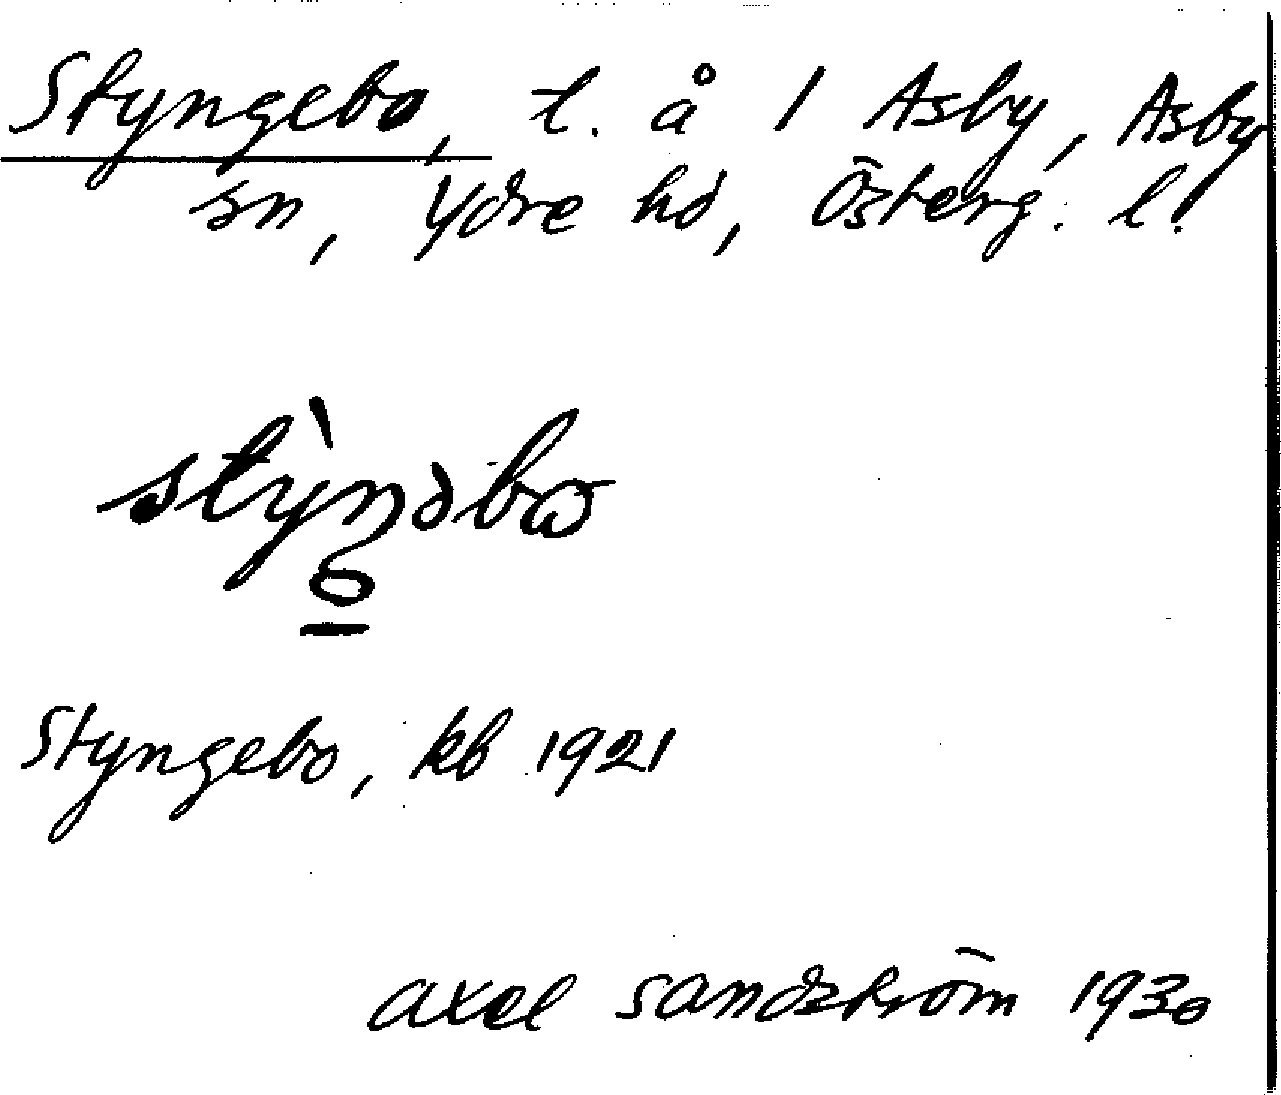 Styngebo, t. å 1 Asby, Asby
sn, Ydre hd, Österg. l.
stỳŋəbo
Styngebo, kb 1921
axel sandström 1930